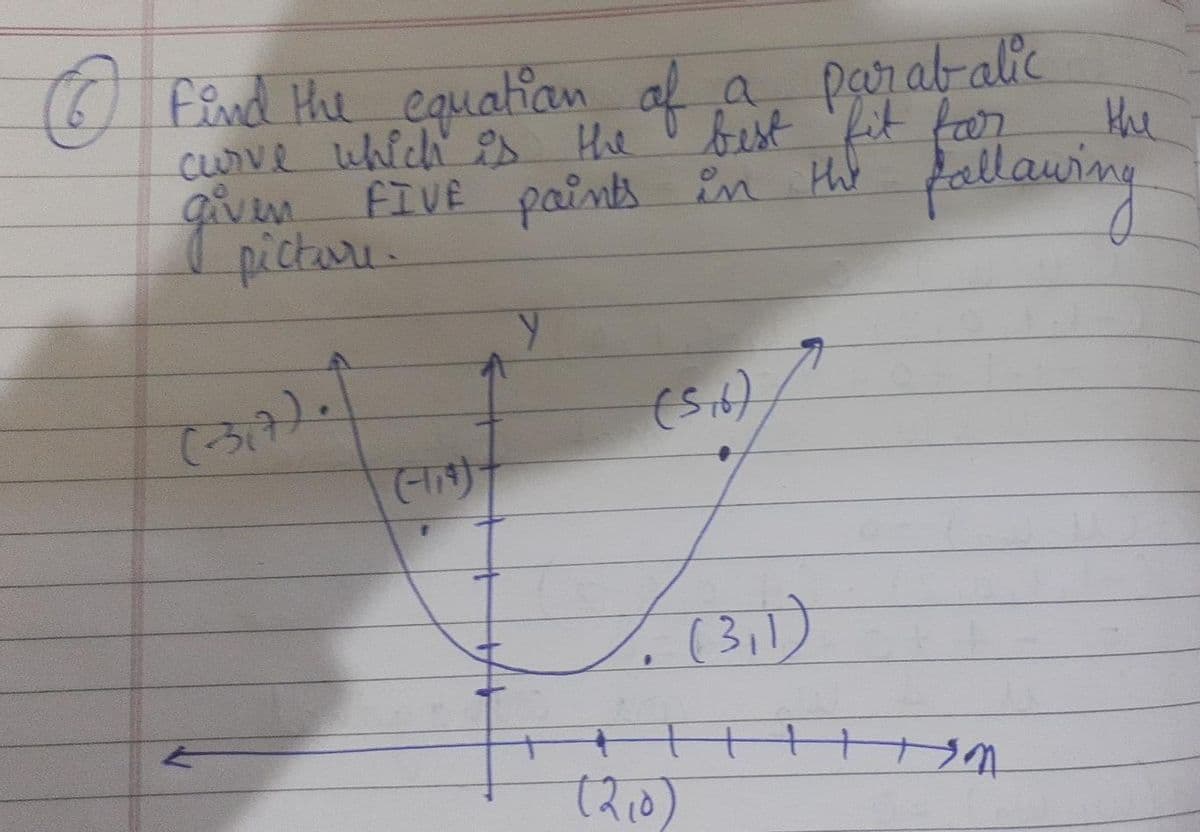 6 Find the equation of a parabolic
curve which is the best fit for the
given FIVE points in the following
picture.
Y
(-3,7)
(5,6)
(-1,4)
(3,1)
x
(2,0)